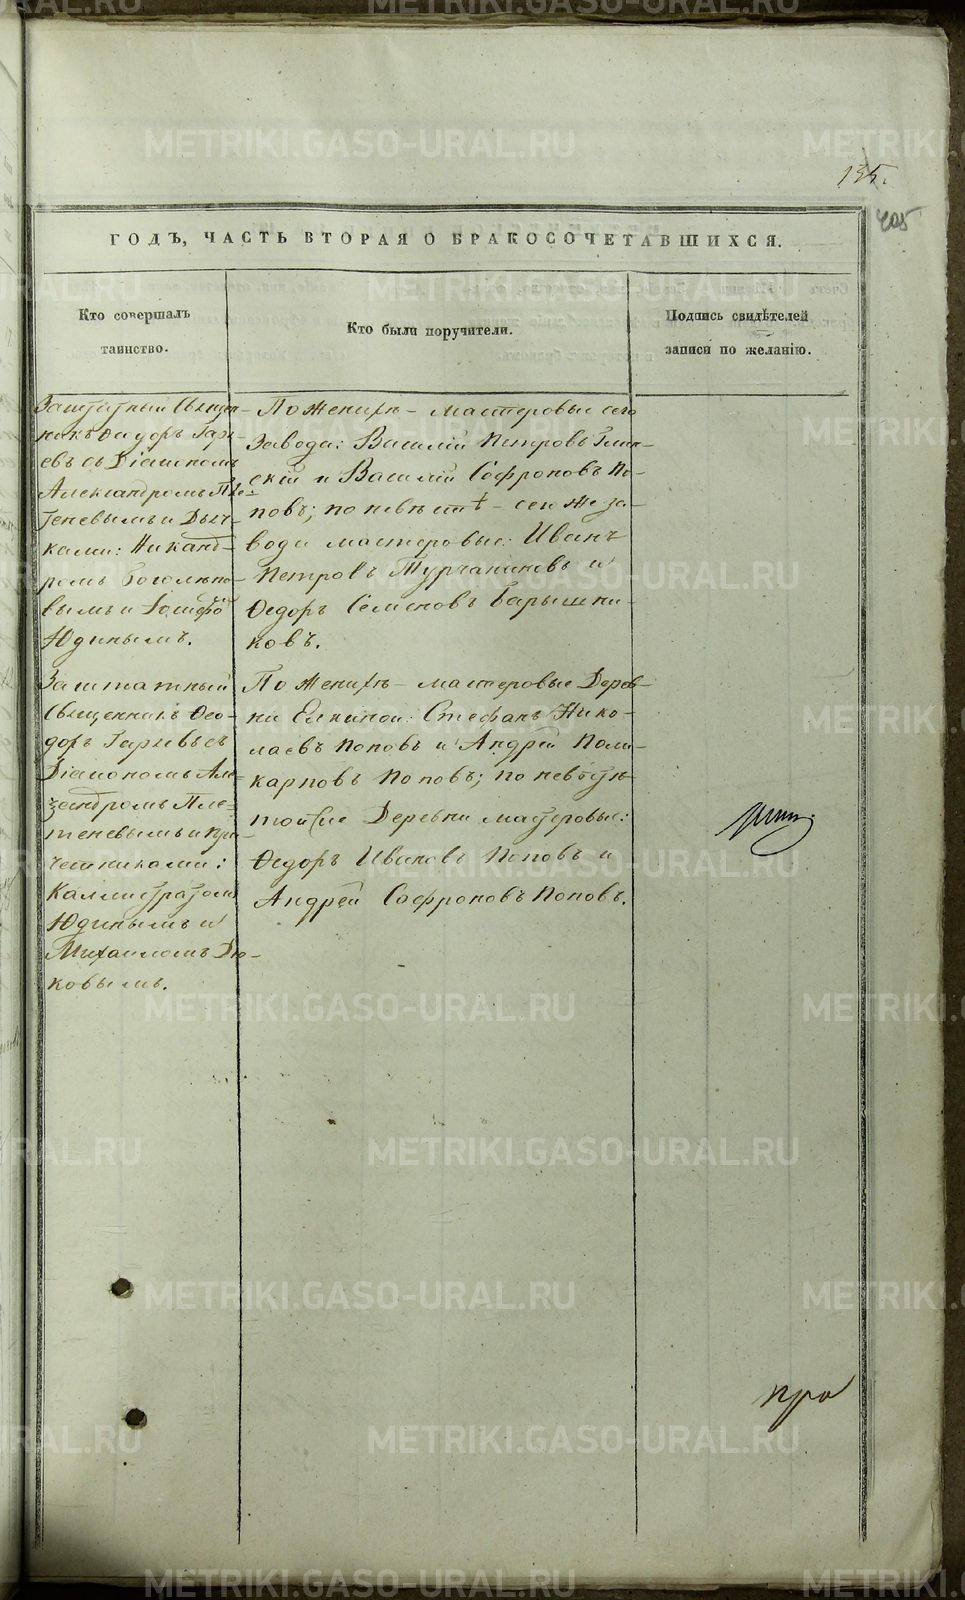 135.
405
ГОДЪ, ЧАСТЬ ВТОРАЯ О БРАКОСОЧЕТАВШИХСЯ.
Кто совершалъ
таинство.
Кто были поручители.
Подпись свидѣтелей
записи по желанію.
Заштатный Священ-
никъ Ѳеодоръ Гаря-
евъ съ Діакономъ
Александромъ Пле-
теневымъ и Дьяч-
ками: Никанд-
ромъ Боголѣпо-
вымъ и Іосифомъ
Юдинымъ.
По женихѣ – мастеровые сего
Завода: Василій Петровъ Глин-
скій и Василій Софроновъ По-
повъ; по невѣстѣ – сего же за-
вода мастеровые: Иванъ
Петровъ Турчаниновъ и
Ѳедоръ Семеновъ Барышни-
ковъ.
Заштатный
Священникъ Ѳео-
доръ Гаряевъ съ
Діакономъ Але-
ксандромъ Пле-
теневымъ и при-
четниками:
Каллистратомъ
Юдинымъ и
Михаиломъ Дю-
ковымъ.
По женихѣ – мастеровые Дерев-
ни Елкиной: Стефанъ Нико-
лаевъ Поповъ и Андрей Поли-
карповъ Поповъ; по невѣстѣ
той же Деревни мастеровые:
Ѳедоръ Ивановъ Поповъ и
Андрей Софроновъ Поповъ.
про
METRIKI.GASO-URAL.RU